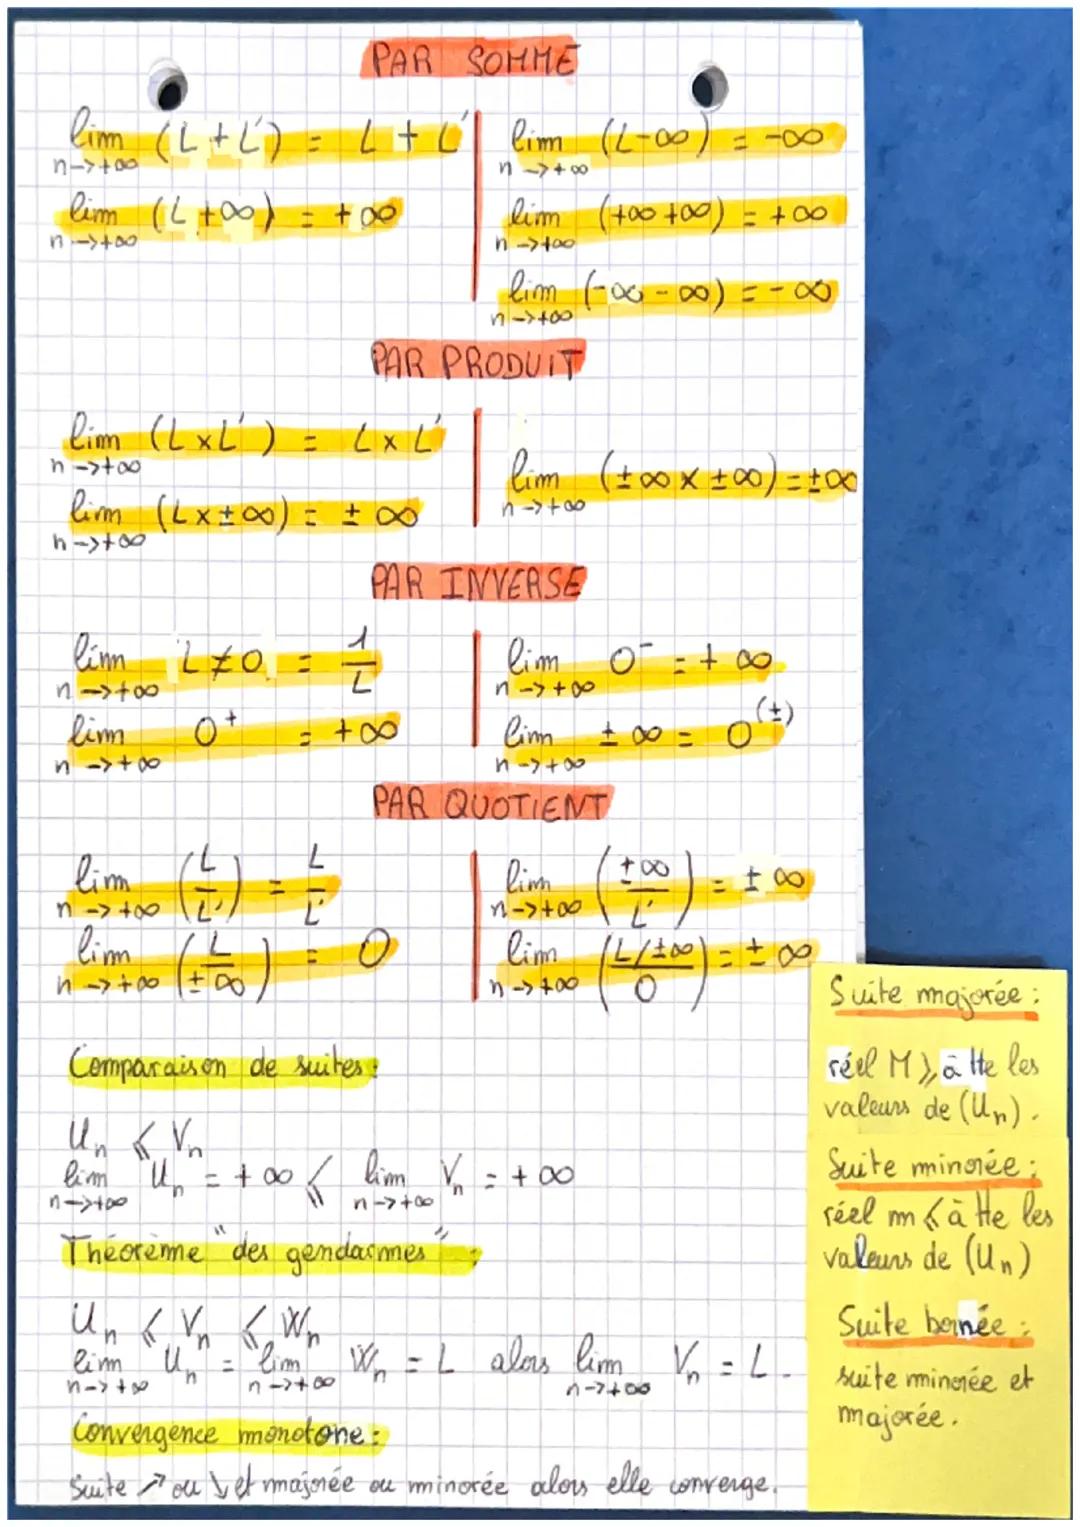 PAR SOMME
lim (L + L') = L + L'
n->+∞
lim (L +∞) = +∞
n->+∞
lim (L-∞) = -∞
n->+∞
lim (+∞ +∞) = +∞
n->+∞
lim (-∞ - ∞) = - ∞
n->+∞
PAR PRODUIT
lim (L x L') = L x L'
n->+∞
lim (L x ± ∞) = ± ∞
n->+∞
lim (± ∞ x ± ∞) = ±∞
n->+∞
PAR INVERSE
lim L ≠ 0 = 1/L
n->+∞
lim 0⁺ = +∞
n->+∞
lim 0⁻ = + ∞
n->+∞
lim ± ∞ = 0^(±)
n->+∞
PAR QUOTIENT
lim (L/L') = L/L'
n->+∞
lim (L/±∞) = 0
n->+∞
lim (±∞/L') = ± ∞
n->+∞
lim ((L/±∞)/0) = ± ∞
n->+∞
Comparaison de suites :
Un ⩽ Vn
lim Un = + ∞ ⩽ lim Vn = + ∞
n->+∞ n->+∞
Théorème "des gendarmes" :
Un ⩽ Vn ⩽ Wn
lim Un = lim Wn = L alors lim Vn = L.
n->+∞ n->+∞ n->+∞
Convergence monotone :
Suite ↗ ou ↘ et majorée ou minorée alors elle converge.
Suite majorée :
réel M ⩾ à tte les
valeurs de (Un).
Suite minorée :
réel m ⩽ à tte les
valeurs de (Un)
Suite bornée :
suite minorée et
majorée.